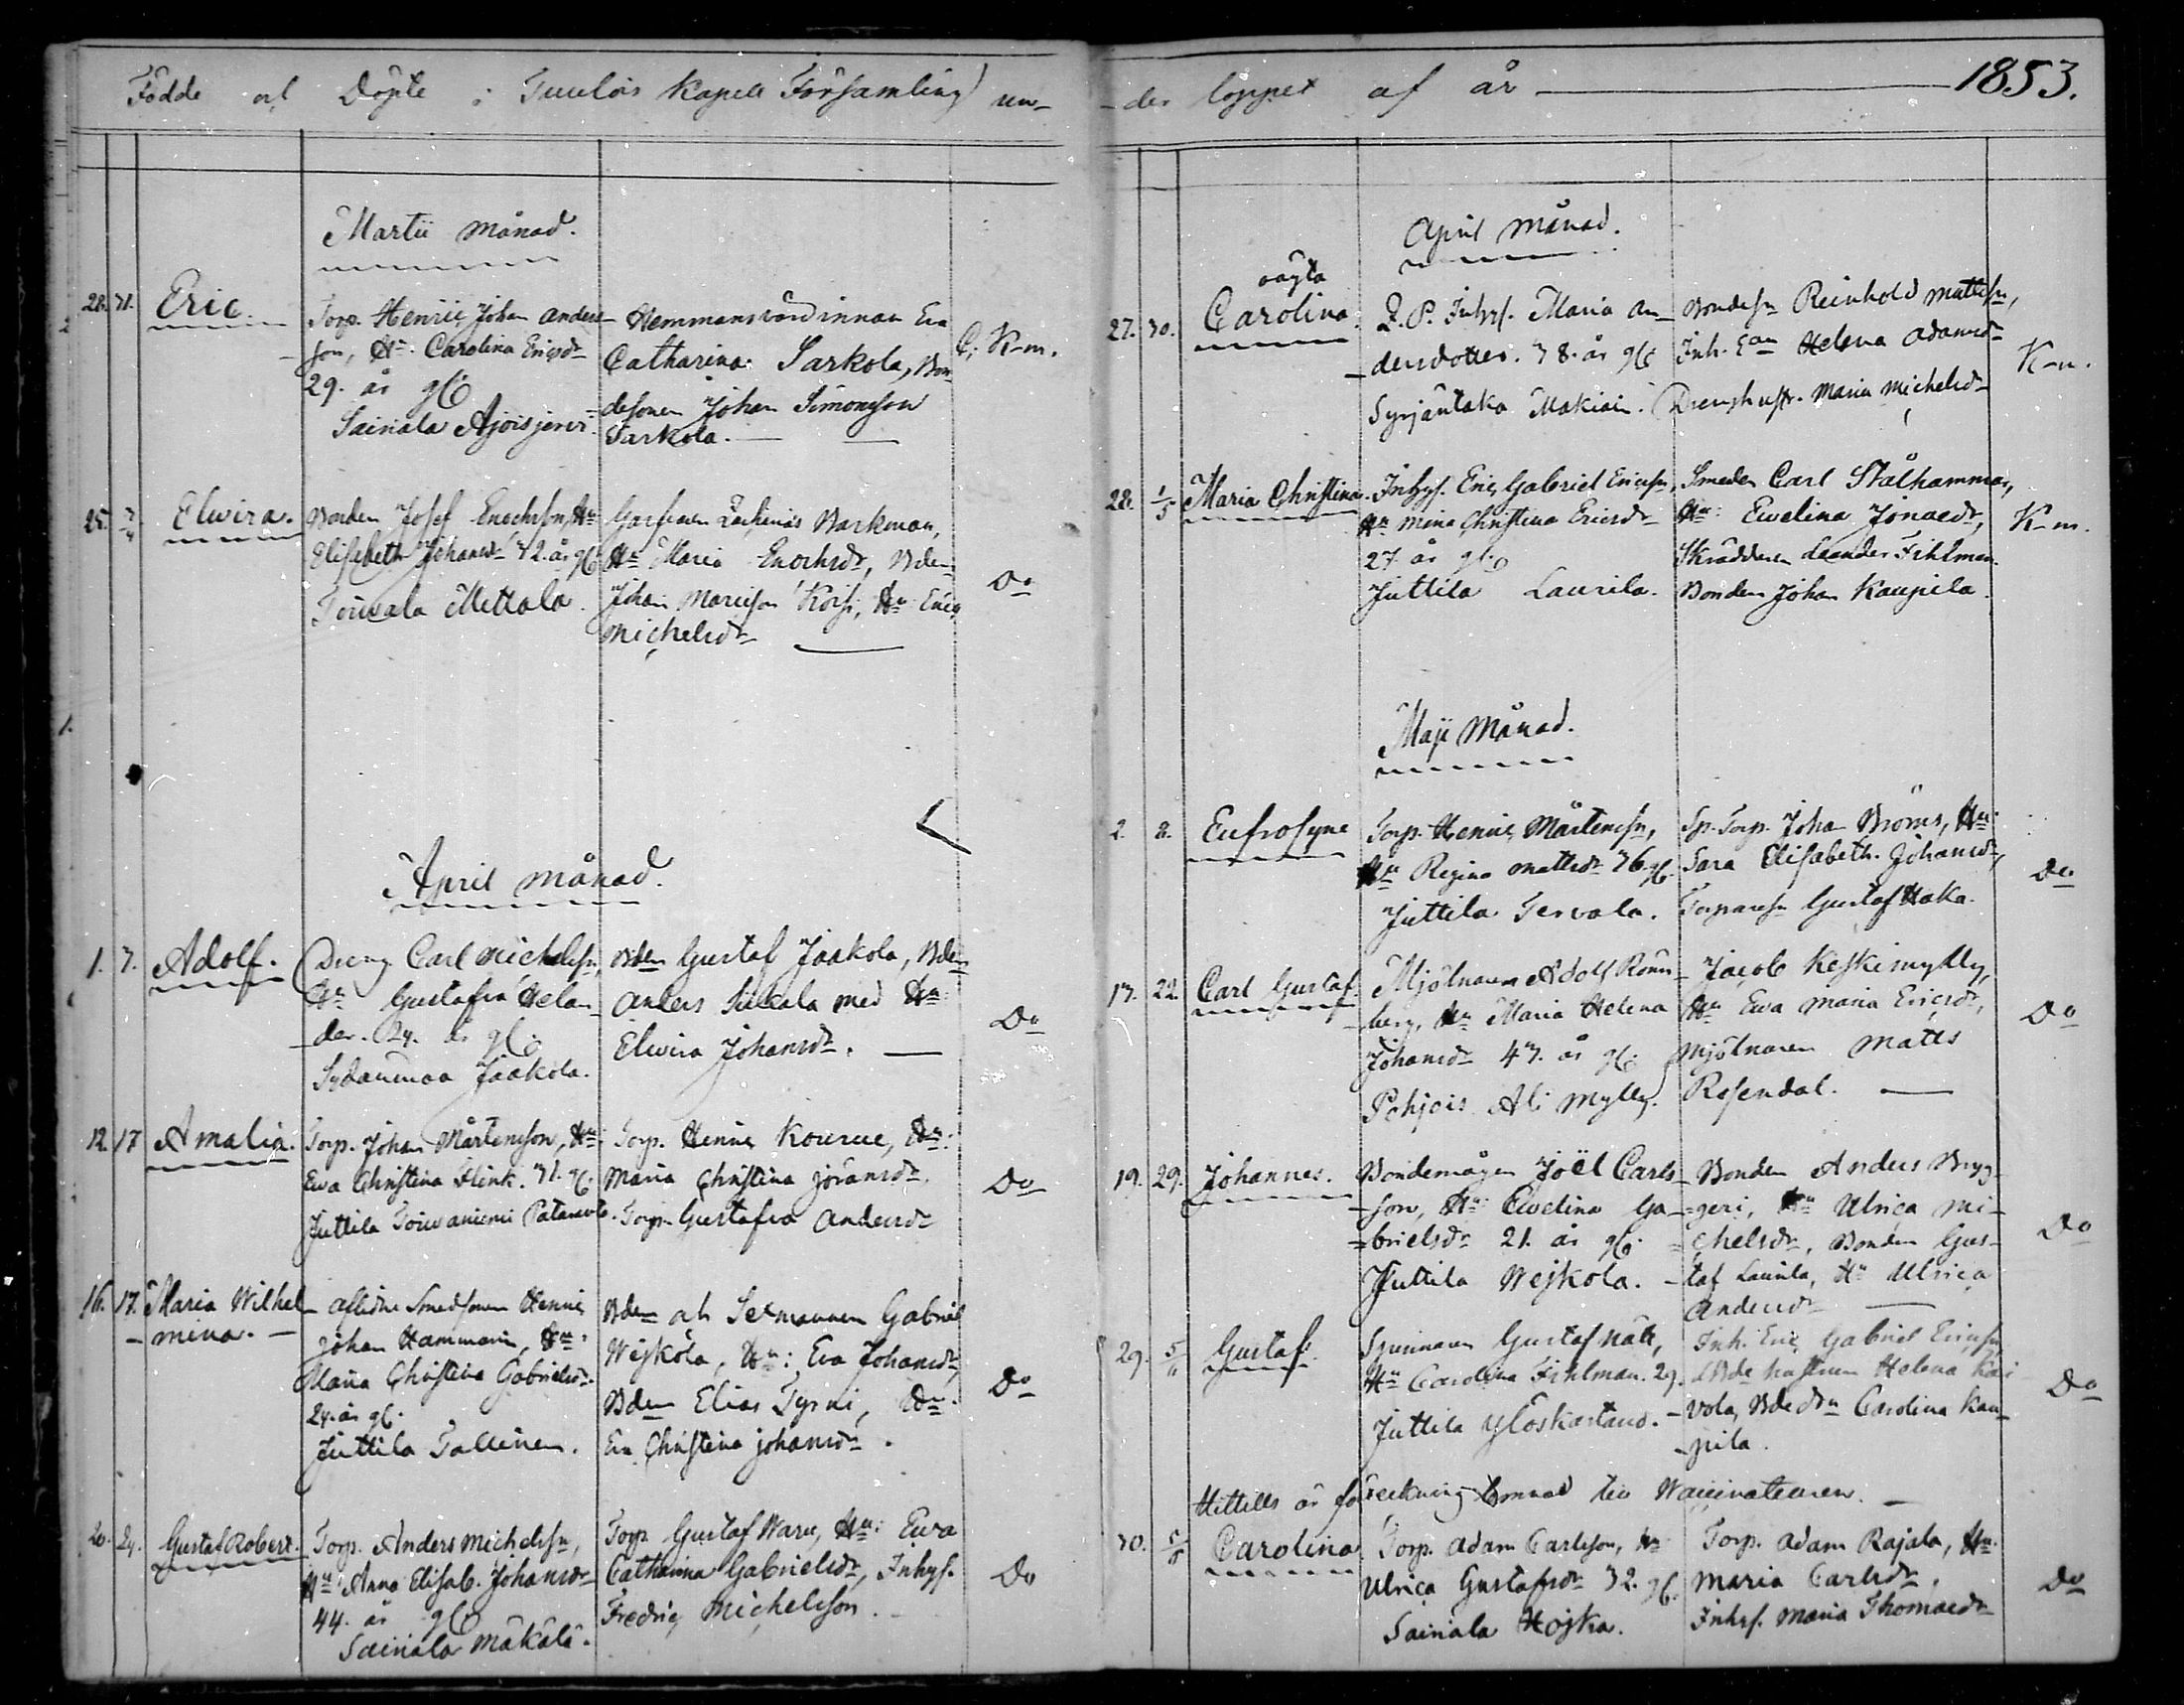 Födde och Döpte i Tuulois Kapell Församling un-
der loppet af år 1853.
Martii månad.
28. 31. Eric.
Torp. Henric Johan Anders-
son, Hu. Carolina Ericsdr
29. år gl.
Sairiala Ajoisjervi
Hemmansvärdinnan Eva
Catharina Sarkola, Bon-
desonen Johan Simonsson
Sarkola.
C. K-m.
25. 3/4 Elwira.
Bonden Josef Enochsson, Hu
Elisabeth Johansdr 32. år gl.
Toivala Mettala.
Garfvaren Barkman,
Hu Maria Enochsdr, Bden
Johan
Michelsdr
Do
April månad.
1. 3. Adolf.
Dreng Carl Michelsson,
Hu Gustafva Helan-
der. 24. år gl.
Sydänmaa Jaakola.
Bden Gustaf Jaakola, Bden
Anders med Hu
Elwira Johansdr.
Do
12. 17 Amalia.
Torp. Johan Mårtensson, Hu
Eva Christina Flink. 31. gl.
Juttila Toivaniemi
Torp. Henric Kourue, Hu:
Maria Christina Jöransdr.
Torp. Gustafva Andersdr
Do
16. 17. Maria Wilhel-
mina.
aflidne Smedsonen Henric
Johan Hammarin, Hu:
Maria Christina Gabrielsdr.
24. år gl.
Juttila Tallinen.
Bden och Sexmannen Gabriel
Wejkola, Hu: Eva Johansdr,
Bden Elias Tyrni, Hu.
Eva Christina Johansdr.
Do
20. 24. Gustaf Robert.
Torp. Anders Michelsson,
Hu Anna Elisab. Johansdr
44. år gl.
Sairiala Mäkälä.
Torp. Gustaf Waru, Hu: Ewa
Catharina Gabrielsdr, Inhys.
Fredric Michelsson.
Do
April månad.
27. 30. oägta
Carolina.
Q. P. Inhys. Maria An-
dersdotter. 38. år gl.
Syrjäntaka Makiain.
Bondesn Reinhold Mattsson,
Inh. Helena Adamsdr
Drenghustr. Maria Michelsdr
K-m.
28. 1/5 Maria Christina.
Inhys. Eric Gabriel Ericsson,
Hu Mina Christina Ericsdr
27. år gl.
Juttila Laurila.
Smeden Carl Stålhammar,
Hu: Ewelina Jonaedr,
Skräddaren Leander Fihlman.
Bonden Johan Kaupila.
K-m.
Maji Månad.
2. 8. Eufrosyne
Torp. Henric Mårtensson,
Hu Regina Mattsdr 36. gl.
Juttila Tervala.
Sp. Torp. Johan Broms, Hu
Sara Elisabeth Johansdr,
Torparesn Gustaf Haka.
Do
13. 22. Carl Gustaf.
Mjölnaren Adolf Rönn-
berg, Hu Maria Helena
Johansdr 43. år gl.
Pohjois Ali Mylly.
Jacob Keskimylly,
Hu Ewa Maria Ericsdr,
Mjölnaren Matts
Rosendal.
Do
19. 29. Johannes.
Bondemågen Joël Carls-
son, Hu: Ewelina Ga-
brielsdr 21. år gl.
Juttila Wejkola.
Bonden Anders Bryg-
geri, Hu Ulrica Mi-
chelsdr, Bonden Gus-
taf Laurila, Hu Ulrica
Andersdr
Do
29. 5/6 Gustaf.
Gustaf
Hu Carolina Fihlman. 29.
Juttila Yloskartano.
Inh. Eric Gabriel Ericsson,
Bdehustrun Helena Kai-
vola, Bdedrn Carolina Kau-
pila.
Do
Hittills är förteckning lemnad till Waccinateuren.
30. 5/6 Carolina
Torp. Adam Carlsson, Hu
Ulrica Gustafsdr 32. gl.
Sairiala Hojka.
Torp. Adam Rajala, Hu.
Maria Carlsdr,
Inhys. Maria Thomaedr
Do